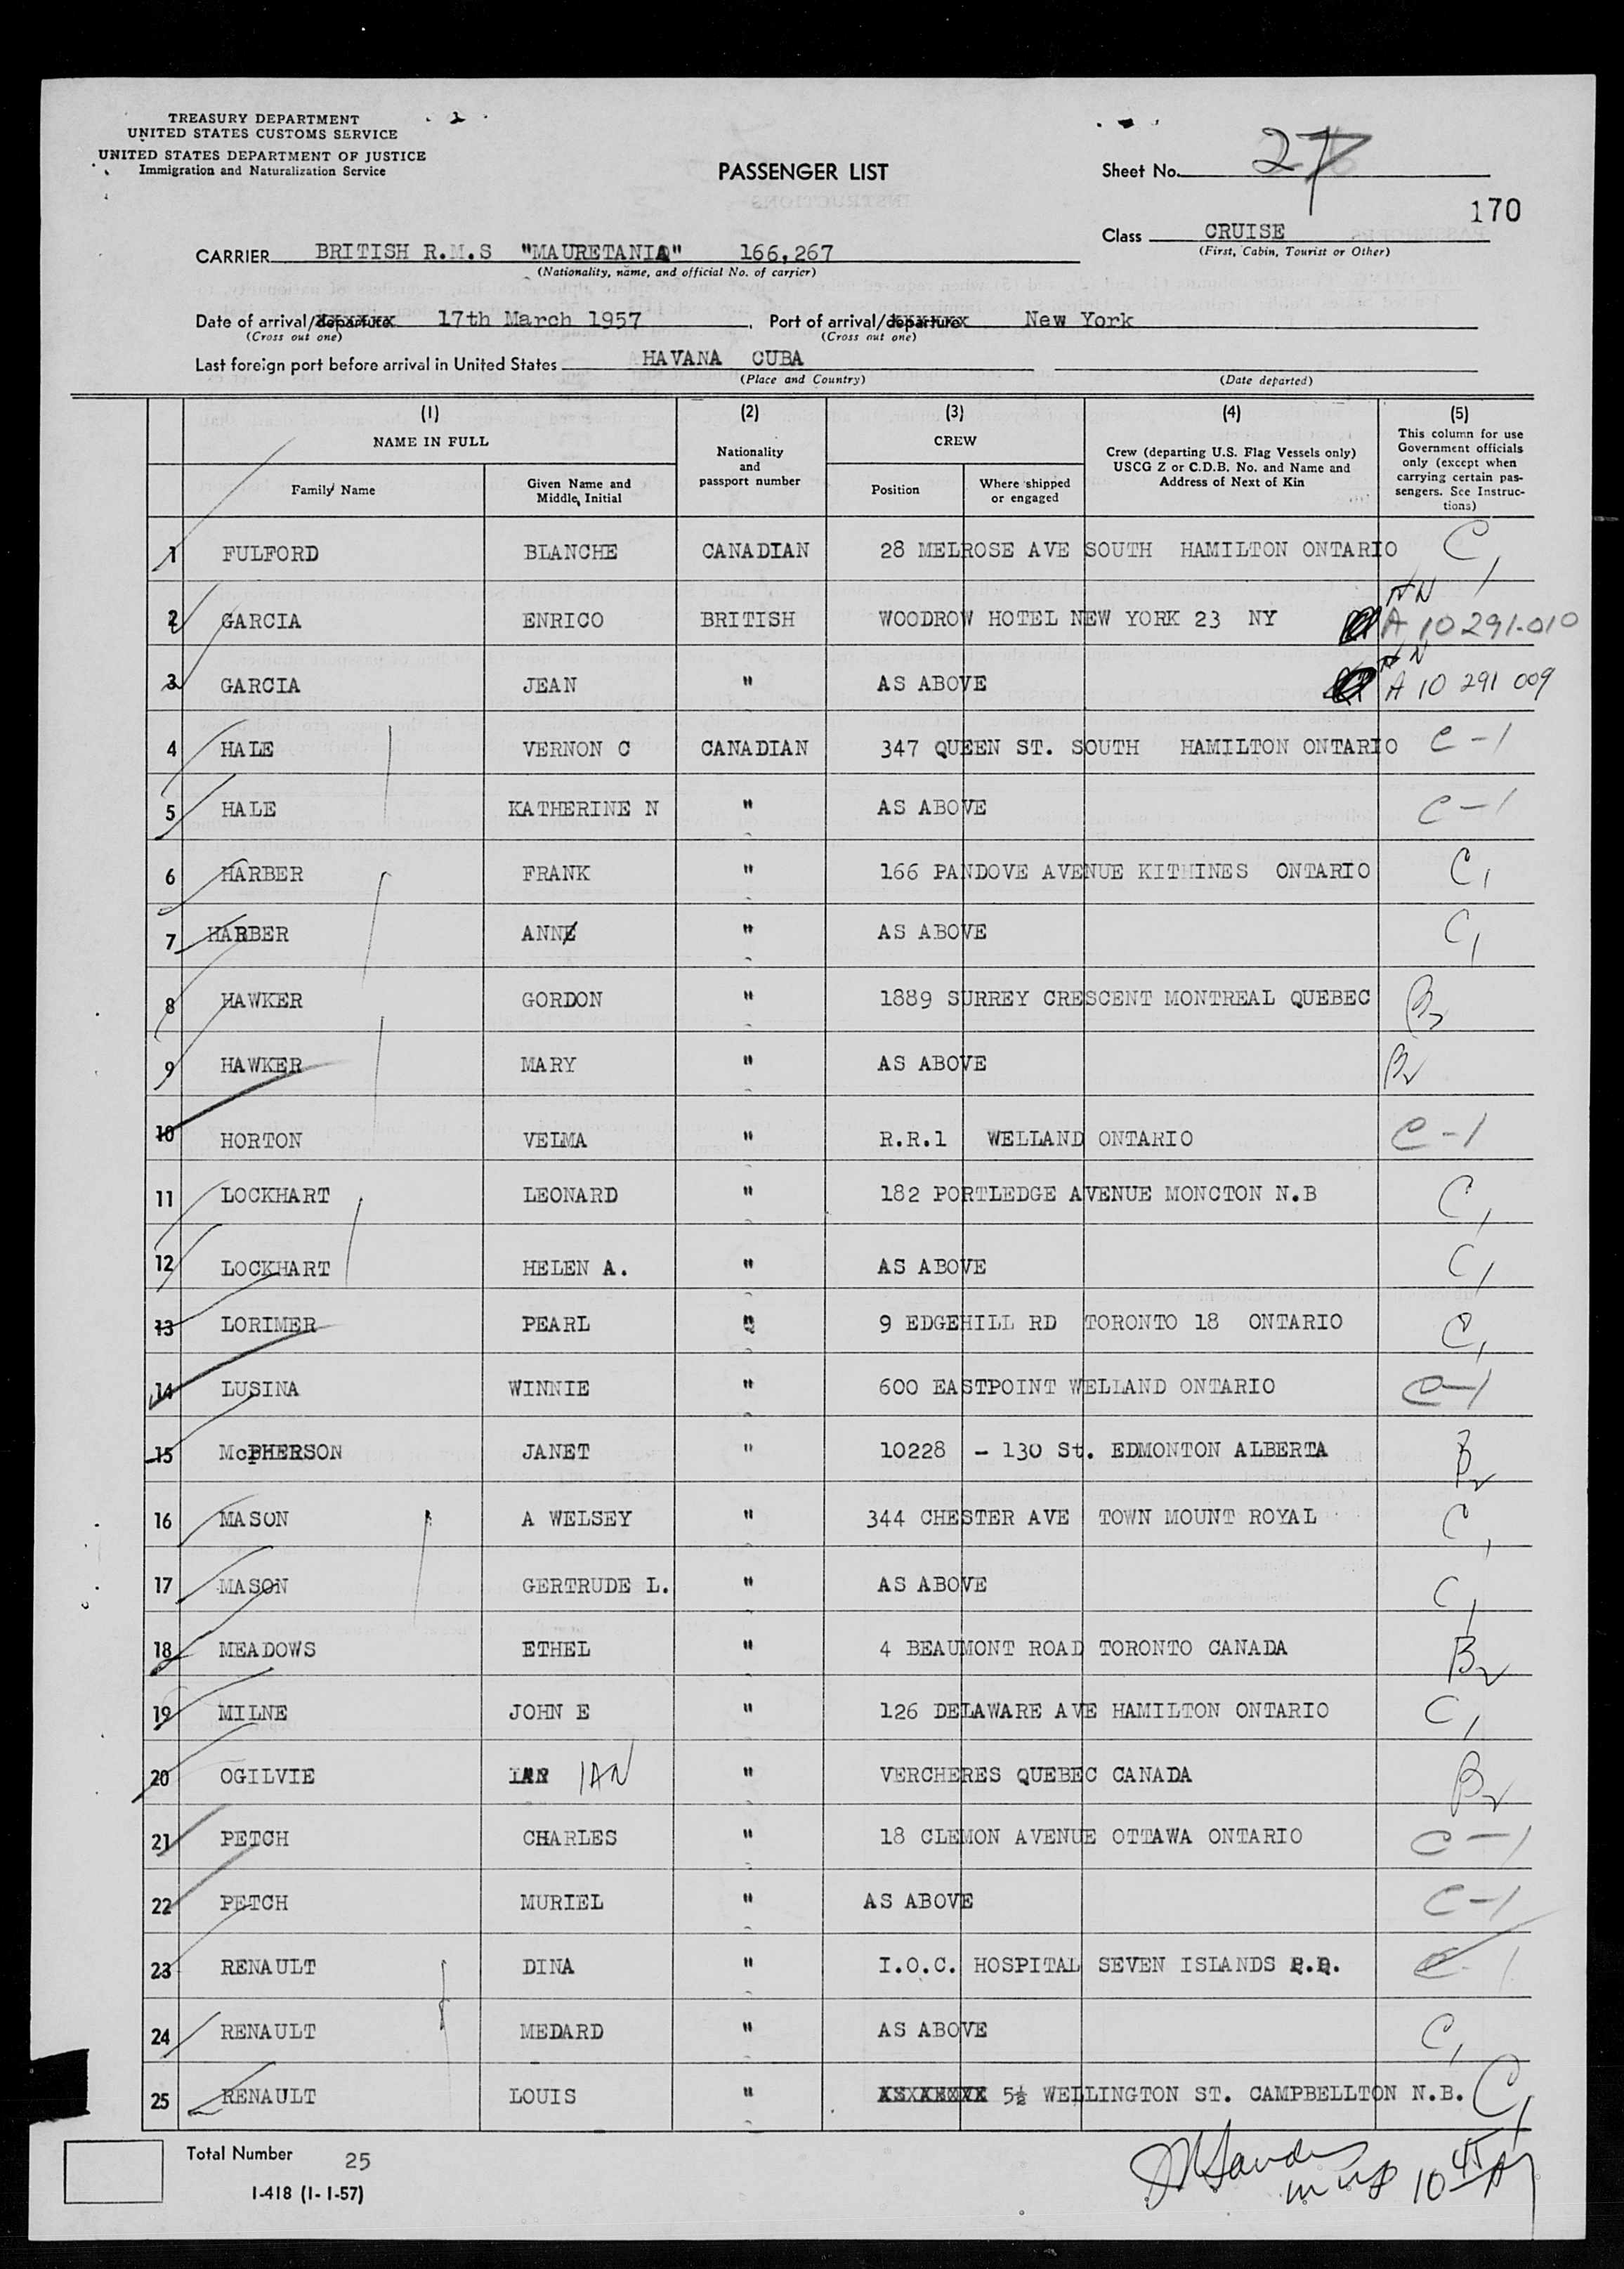 TREASURY DEPARTMENT
UNITED STATES CUSTOMS SERVICE
UNITED STATES DEPARTMENT OF JUSTICE
Immigration and Naturalization Service
PASSENGER LIST
Sheet No. 27
170
Class CRUISE
(First, Cabin, Tourist or Other)
CARRIER BRITISH R.M.S "MAURETANIA" 166,267
(Nationality, name, and official No. of carrier)
Date of arrival/departure 17th March 1957. Port of arrival/departure New York
(Cross out one) (Cross out one)
Last foreign port before arrival in United States HAVANA CUBA
(Place and Country) (Date departed)
(1) (2) (3) (4) (5)
NAME IN FULL
Family Name
Given Name and Middle Initial
Nationality and passport number
CREW
Position
Where shipped or engaged
Crew (departing U.S. Flag Vessels only) USCG Z or C.D.B. No. and Name and Address of Next of Kin
This column for use Government officials only (except when carrying certain passengers. See Instructions)
1 FULFORD BLANCHE CANADIAN 28 MELROSE AVE SOUTH HAMILTON ONTARIO C1
2 GARCIA ENRICO BRITISH WOODROW HOTEL NEW YORK 23 NY A 10 291-010
3 GARCIA JEAN " AS ABOVE A 10 291 009
4 HALE VERNON C CANADIAN 347 QUEEN ST. SOUTH HAMILTON ONTARIO C-1
5 HALE KATHERINE N " AS ABOVE C-1
6 HARBER FRANK " 166 PANDOVE AVENUE KITHINES ONTARIO C1
7 HARBER ANNE " AS ABOVE C1
8 HAWKER GORDON " 1889 SURREY CRESCENT MONTREAL QUEBEC B2
9 HAWKER MARY " AS ABOVE B2
10 HORTON VELMA " R.R.1 WELLAND ONTARIO C-1
11 LOCKHART LEONARD " 182 PORTLEDGE AVENUE MONCTON N.B C1
12 LOCKHART HELEN A. " AS ABOVE C1
13 LORIMER PEARL " 9 EDGEHILL RD TORONTO 18 ONTARIO C1
14 LUSINA WINNIE " 600 EASTPOINT WELLAND ONTARIO C-1
15 McPHERSON JANET " 10228 - 130 St. EDMONTON ALBERTA B2
16 MASON A WELSEY " 344 CHESTER AVE TOWN MOUNT ROYAL C1
17 MASON GERTRUDE L. " AS ABOVE C1
18 MEADOWS ETHEL " 4 BEAUMONT ROAD TORONTO CANADA B2
19 MILNE JOHN E " 126 DELAWARE AVE HAMILTON ONTARIO C1
20 OGILVIE IAN " VERCHERES QUEBEC CANADA B2
21 PETCH CHARLES " 18 CLEMON AVENUE OTTAWA ONTARIO C-1
22 PETCH MURIEL " AS ABOVE C-1
23 RENAULT DINA " I.O.C. HOSPITAL SEVEN ISLANDS P.Q. C-1
24 RENAULT MEDARD " AS ABOVE C1
25 RENAULT LOUIS " 5½ WELLINGTON ST. CAMPBELLTON N.B. C1
Total Number 25
I-418 (1-1-57)